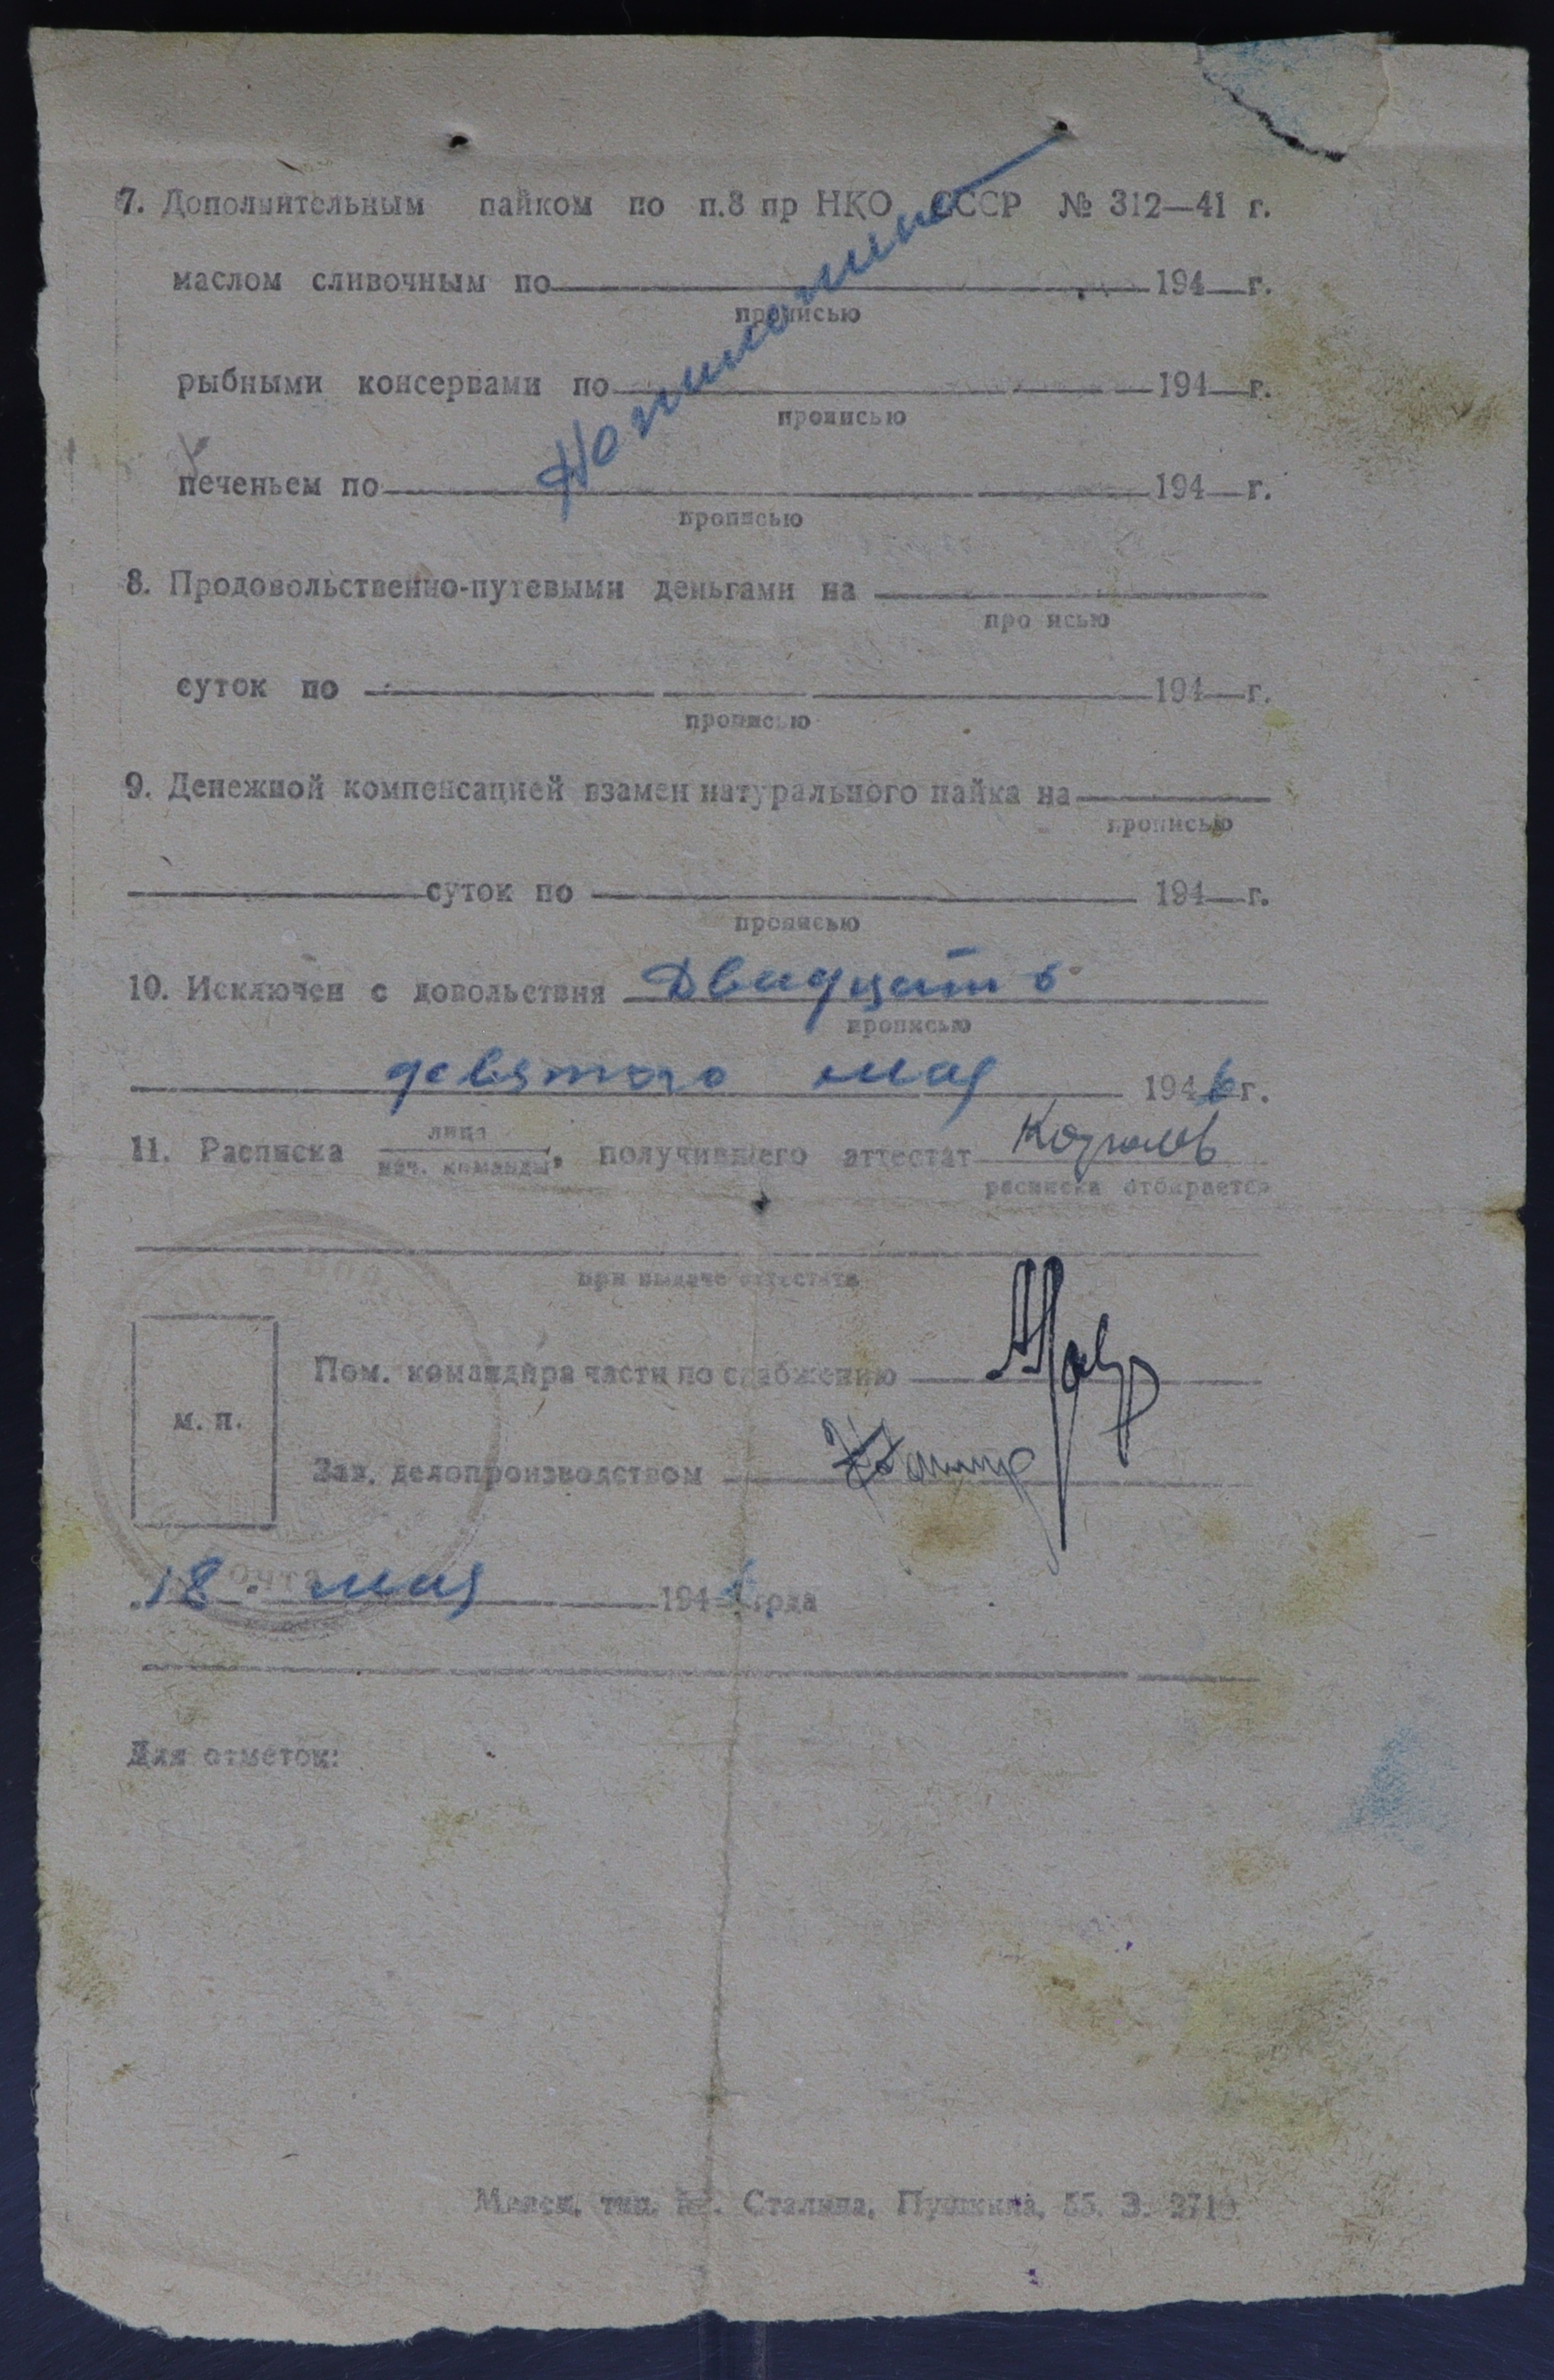 7. Дополнительным пайком по п.8 пр НКО СССР № 312—41 г.
маслом сливочным по 194 г.
прописью
рыбными консервами по 194 г.
прописью
печеньем по 194 г.
прописью
8. Продовольственно-путевыми деньгами на
про исью
суток по 194 г.
прописью
9. Денежной компенсацией взамен натурального пайка на
прописью
суток по 194 г.
прописью
10. Исключен с довольствия Двадцать
прописью
девятого мая 1946 г.
11. Расписка лица
нач. команды, получившего аттестат
расписка отбирается
при выдаче аттестата
Пом. командира части по снабжению
м. п.
Зав. делопроизводством
18. мая 1946 года
Для отметок:
Минск, тип. им. Сталина, Пушкина, 55. З.